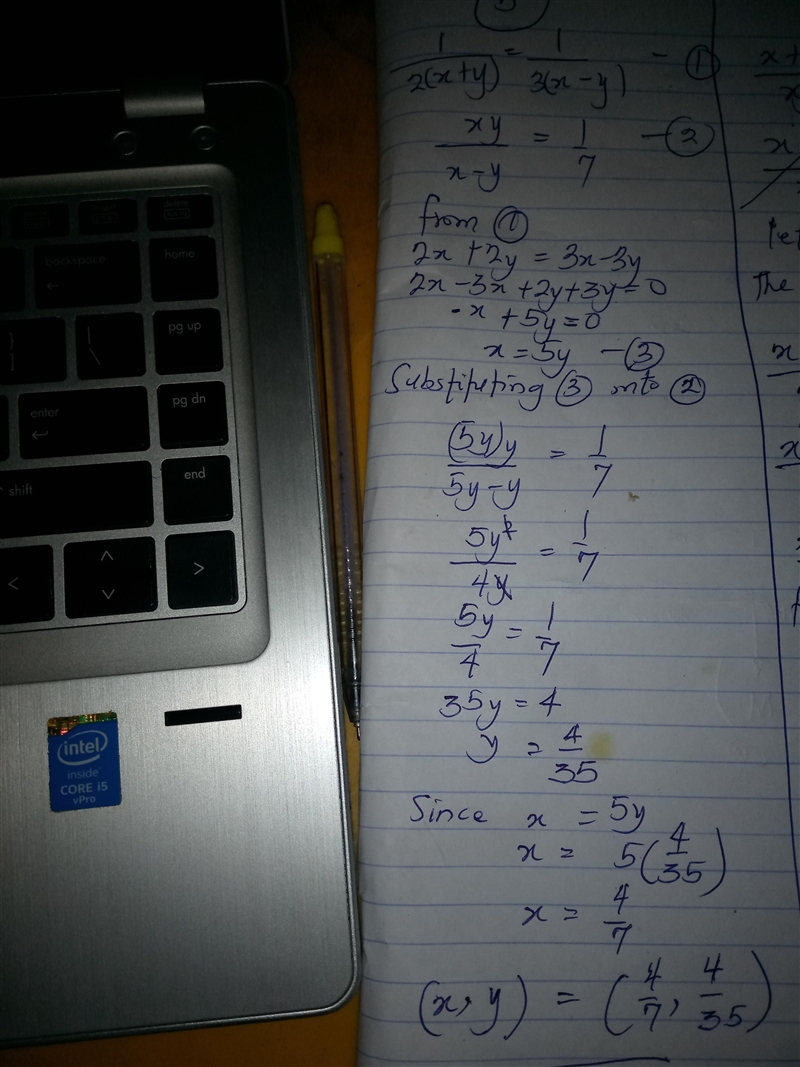 backspace
home
pg up
enter
pg dn
shift
end
intel
inside
CORE i5
vPro
5
1/2(x+y) = 1/3(x-y) - ①
xy/x-y = 1/7 - ②
from ①
2x + 2y = 3x-3y
2x-3x+2y+3y=0
-x + 5y=0
x=5y - ③
③ into ②
(5y)y/5y-y = 1/7
5y²/4y = 1/7
5y/4 = 1/7
35y = 4
y = 4/35
Since x = 5y
x = 5(4/35)
x = 4/7
(x, y) = (4/7, 4/35)
The